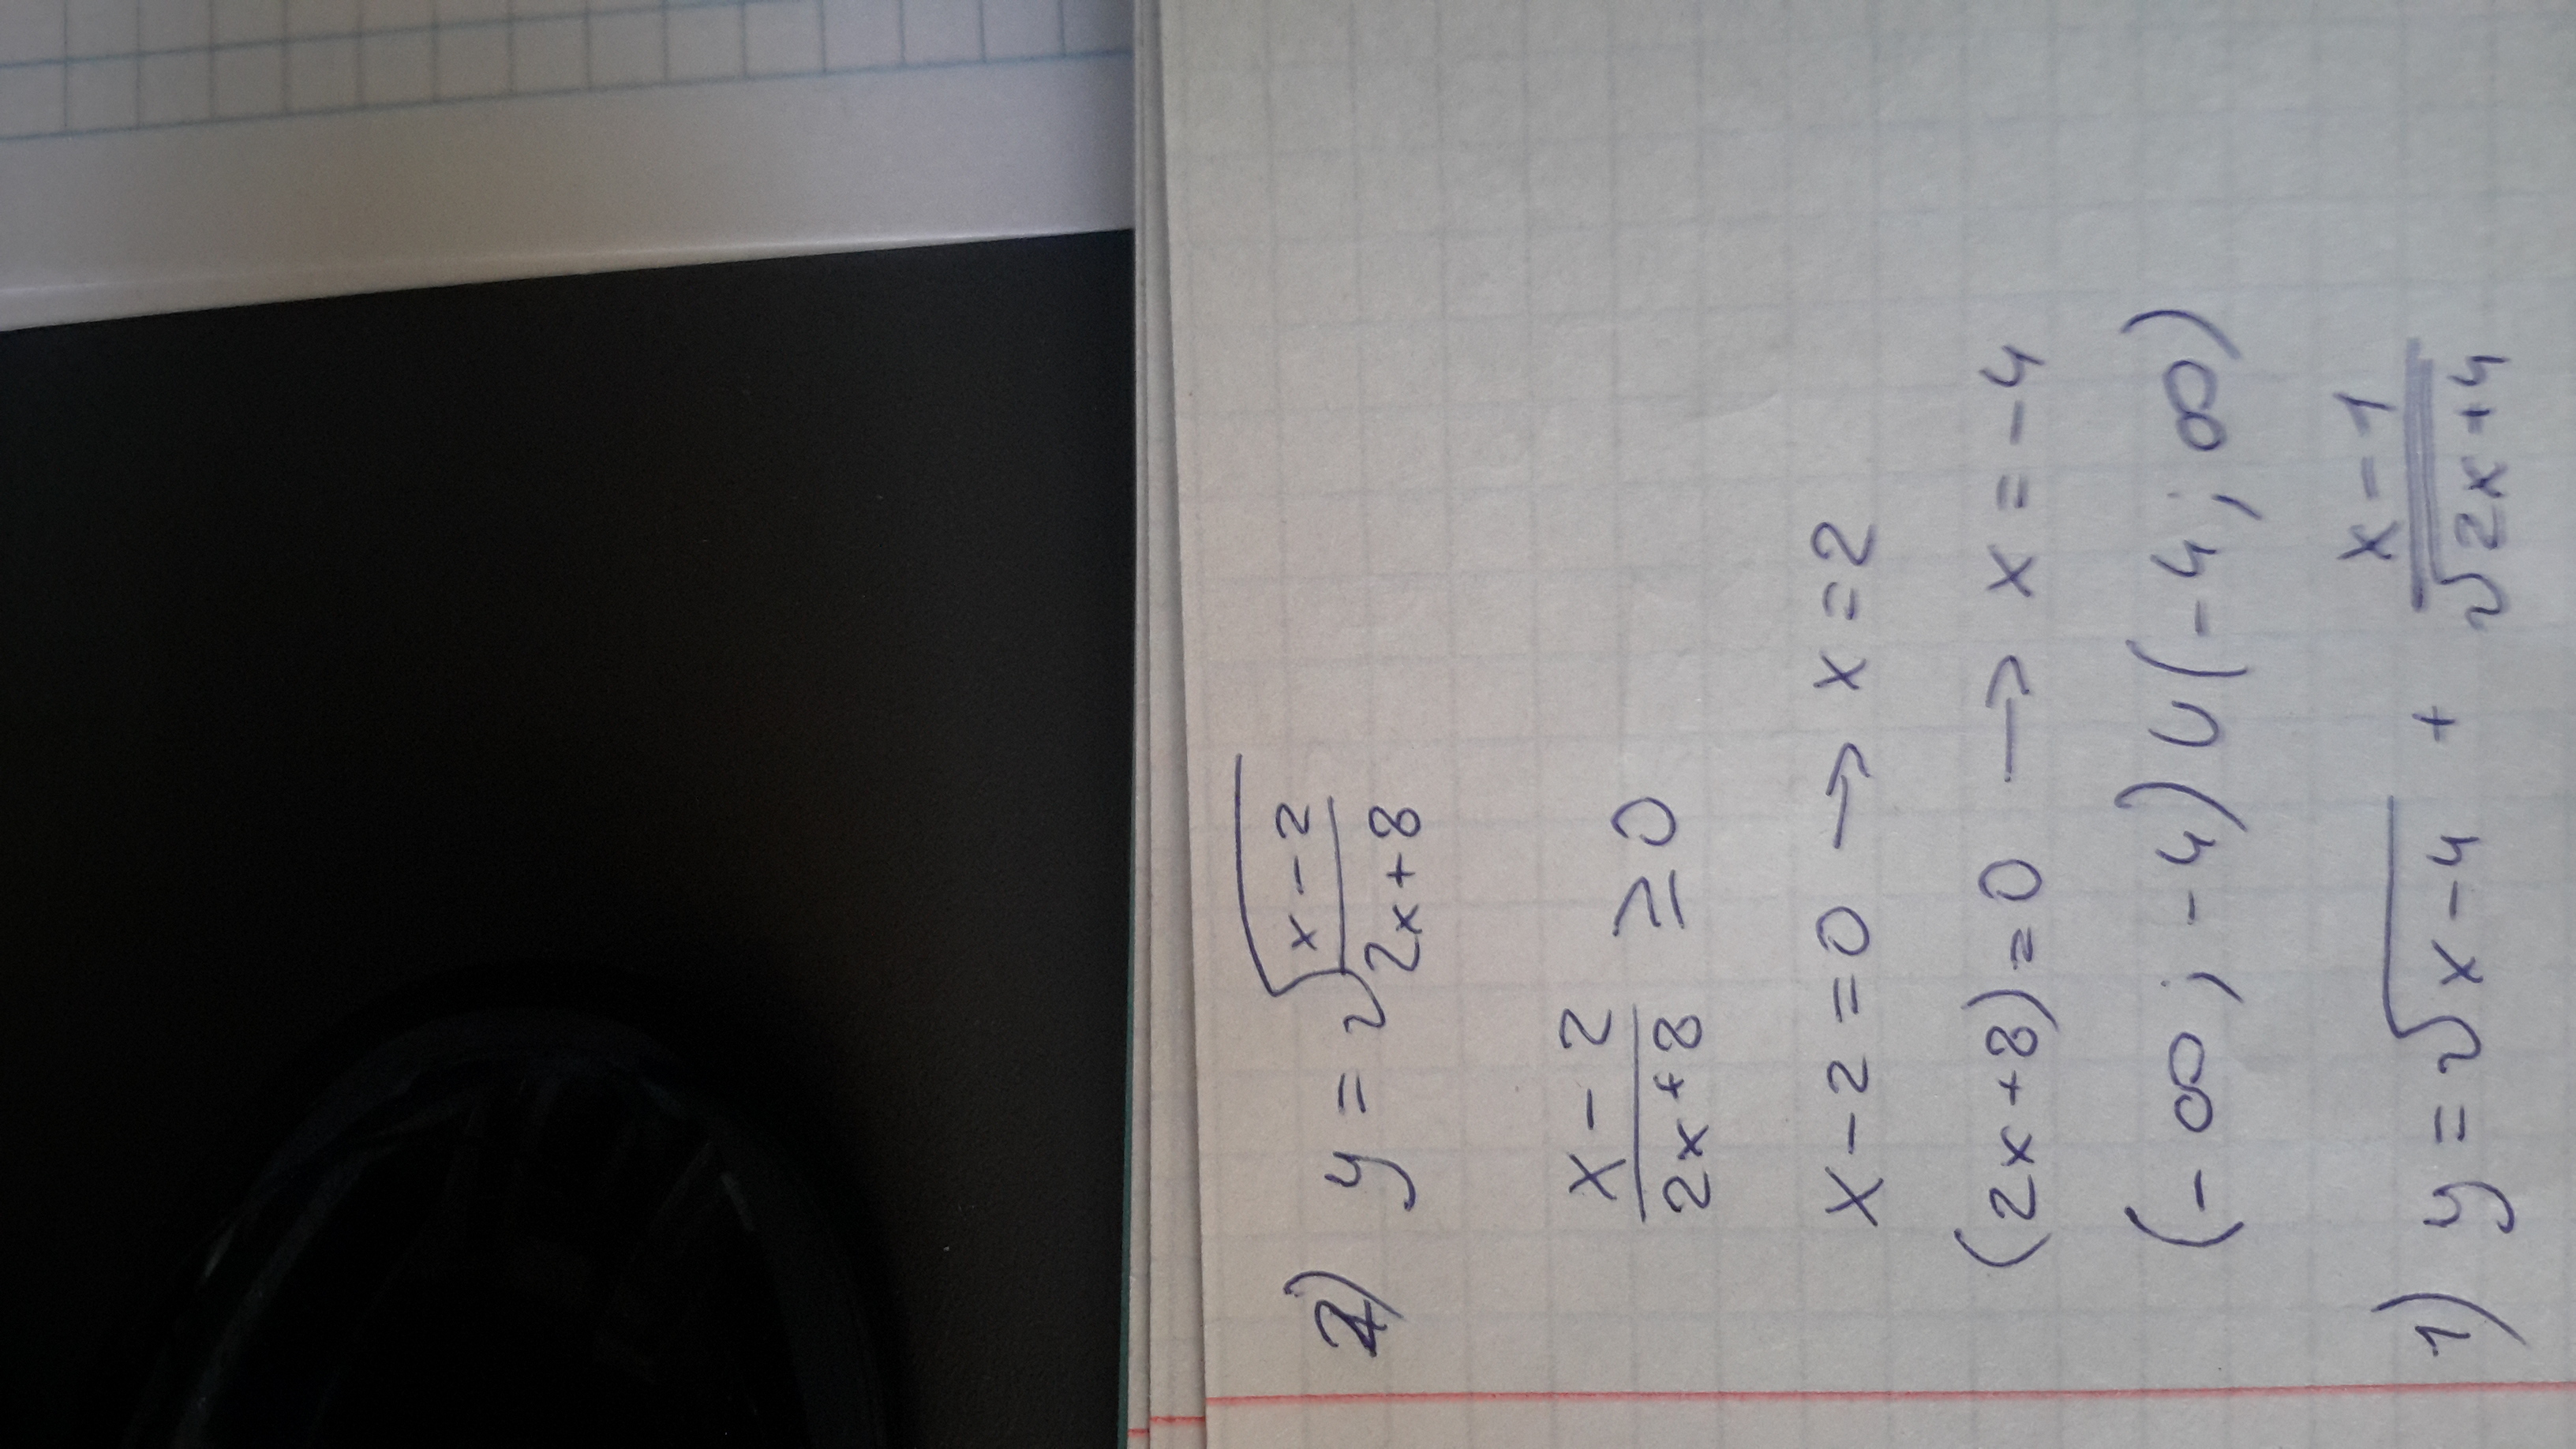 2) y = √(x-2)/(2x+8)
(x-2)/(2x+8) ≥ 0
x-2=0 → x=2
(2x+8)=0 → x=-4
(-∞;-4)∪(-4;∞)
1) y=√x-4 + (x-1)/√2x+4